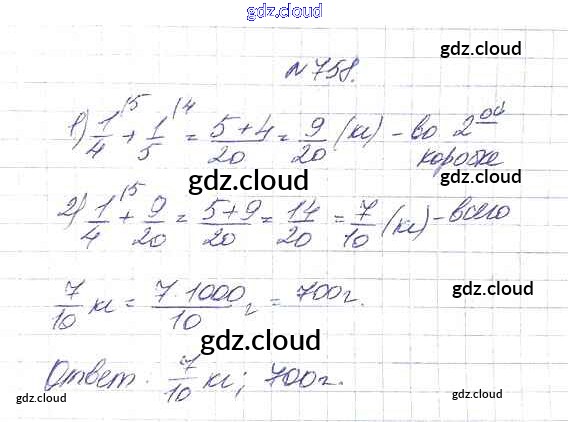 gdz.cloud
gdz.cloud
№ 758.
1) 1/4 (5 + 1/5 (4 = 5+4/20 = 9/20 (кг) - во 2ой
коробке
gdz.cloud
gdz.cloud
2) 1/4 (5 + 9/20 = 5+9/20 = 14/20 = 7/10 (кг) - всего
7/10 кг = 7·1000/10 г = 700г.
gdz.cloud
gdz.cloud
Ответ: 7/10 кг; 700г.
gdz.cloud
gdz.cloud